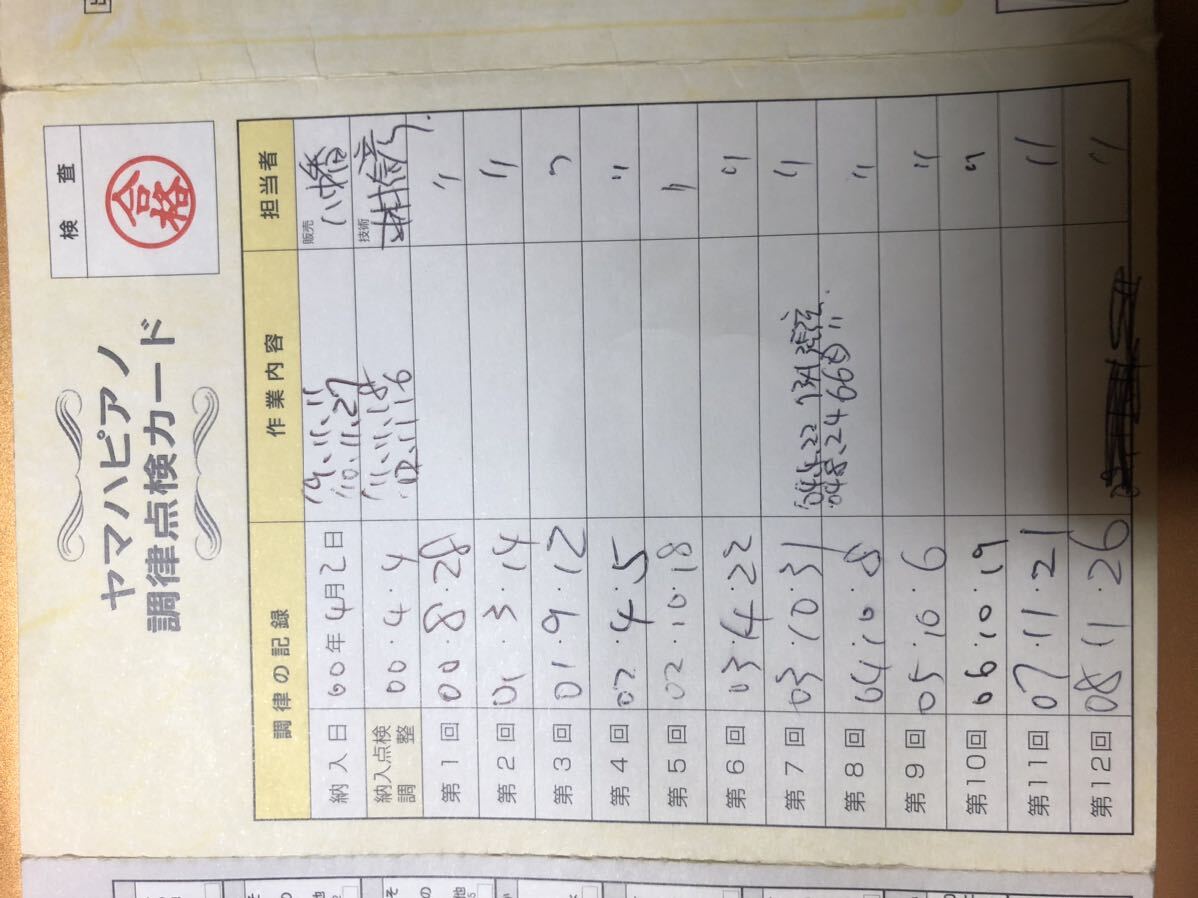 検査
合格
ヤマハピアノ
調律点検カード
調律の記録 作業内容 担当者
納入日 00年4月2日 '9.11.11 販売 八幡
'10.11.27
納入点検調整 00.4.4 '11.11.18 技術
'12.11.16
第1回 00.8.28 〃
第2回 01.3.14 〃
第3回 01.9.12 〃
第4回 02.4.5 〃
第5回 02.10.18 〃
第6回 03.4.22 〃
第7回 03.10.31 〃
'04.4.22 73A
第8回 04.10.8 〃
第9回 05.10.6 〃
第10回 06.10.19 〃
第11回 07.11.21 〃
第12回 08.11.26 〃
その他
その他